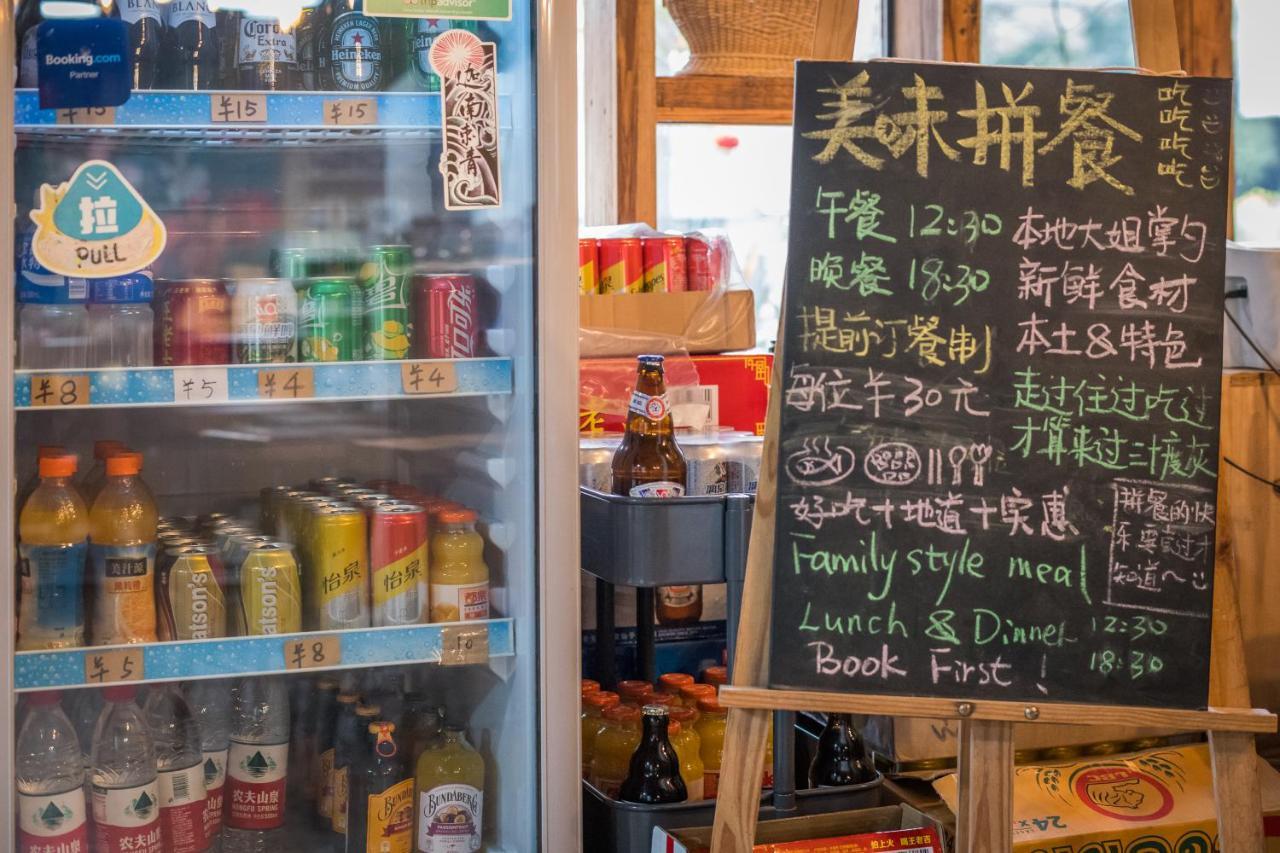 Booking.com
Partner
BLANC
BLANC
Corona
Extra
Heineken
¥15
¥15
¥15
迦南刺青
拉
PULL
¥8
¥5
¥4
¥4
美汁源
Watson's
Watson's
怡泉
怡泉
¥5
¥8
10
农夫山泉
农夫山泉
NONGFU SPRING
农夫山泉
BUNDABERG
BUNDABERG
美味拼餐
吃
吃
吃
吃
午餐 12:30
晚餐 18:30
提前订餐制
每位¥30元
好吃+地道+实惠
本地大姐掌勺
新鲜食材
本土&特色
走过住过吃过
才算来过二十度灰
拼餐的快
乐要寅过才
知道~
Family style meal
Lunch & Dinner 12:30
18:30
Book First !
24×